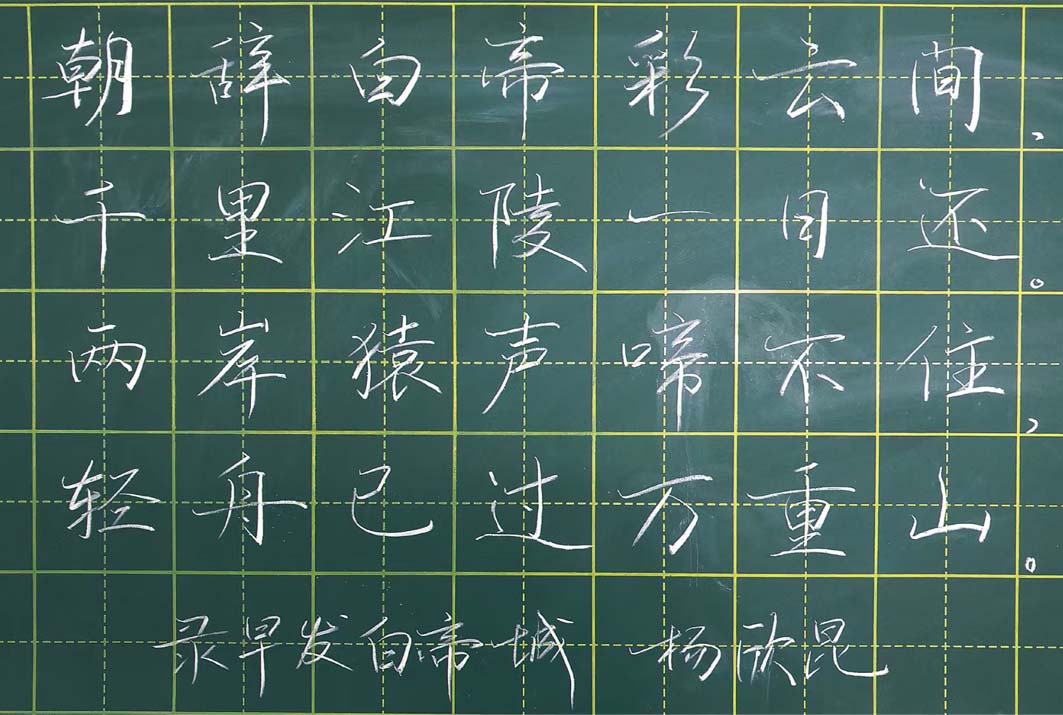 朝辞白帝彩云间、
千里江陵一日还。
两岸猿声啼不住,
轻舟已过万重山。
录早发白帝城 杨欣昆